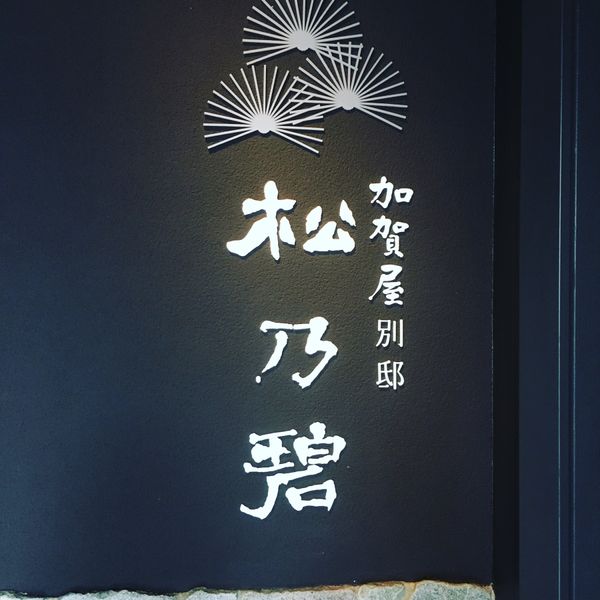 加賀屋別邸
松乃碧